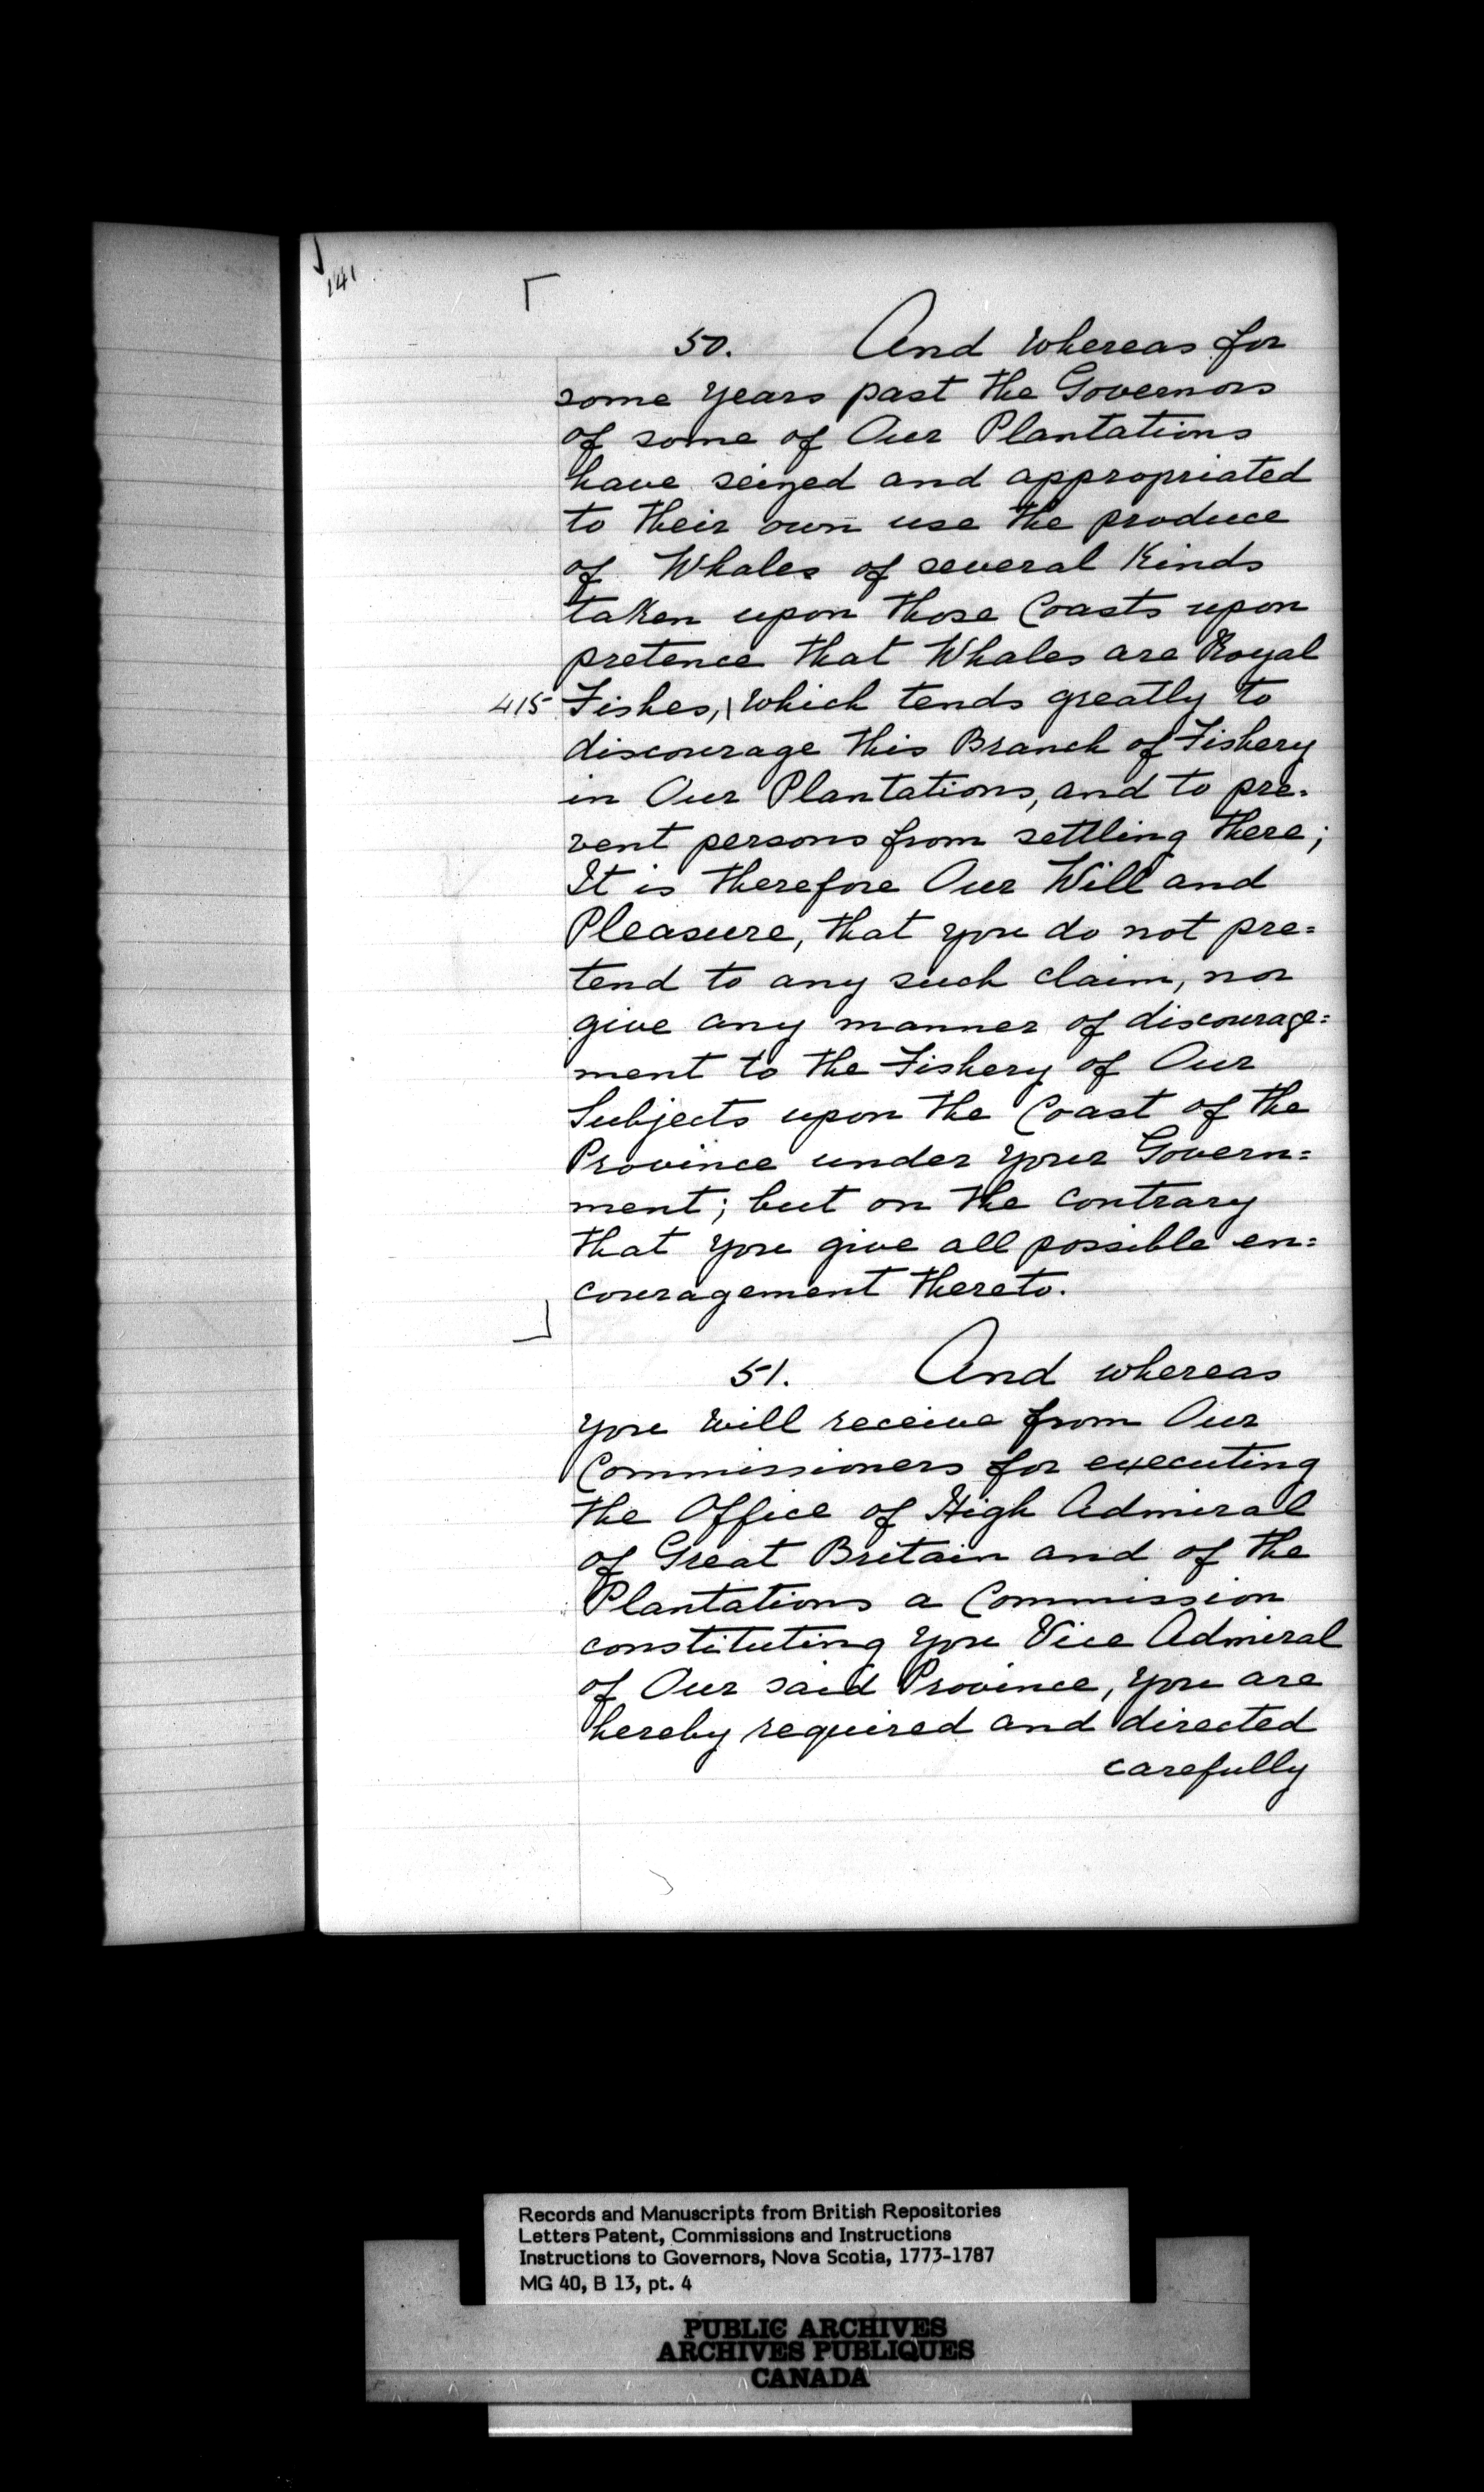 141
50. And whereas for
some years past the Governors
of some of Our Plantations
have seized and appropriated
to their own use the produce
of Whales of several Kinds
taken upon those Coasts upon
pretence that Whales are Royal
415 Fishes, \ which tends greatly to
discourage this Branch of Fishery
in Our Plantations, and to pre-
vent persons from settling there;
It is therefore Our Will and
Pleasure, that you do not pre=
tend to any such claim, nor
give any manner of discourage=
ment to the Fishery of Our
Subjects upon the Coast of the
Province under your Govern=
ment; but on the contrary
that you give all possible en=
couragement thereto.
51. And whereas
you will receive from Our
Commissioners for executing
the Office of High Admiral
of Great Britain and of the
Plantations a Commission
constituting you Vice Admiral
of Our said Province, you are
hereby required and directed
carefully
Records and Manuscripts from British Repositories
Letters Patent, Commissions and Instructions
Instructions to Governors, Nova Scotia, 1773-1787
MG 40, B 13, pt. 4
PUBLIC ARCHIVES
ARCHIVES PUBLIQUES
CANADA